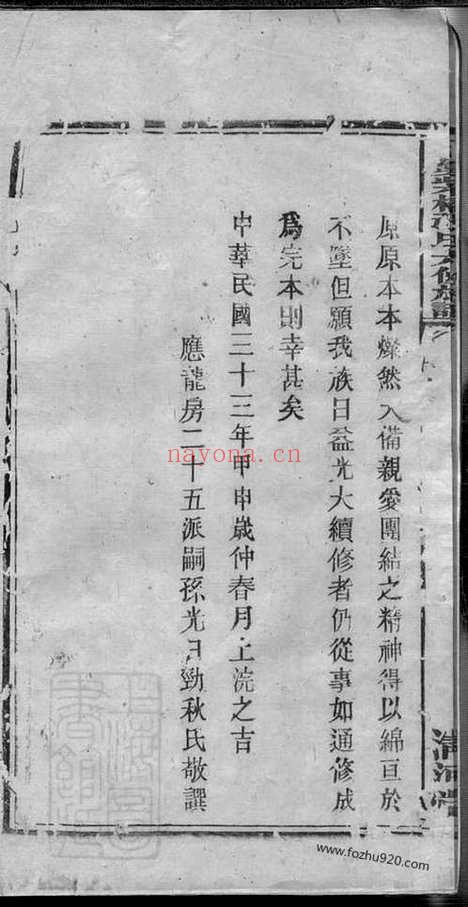 原原本本燦然大備親愛團結之精神得以綿亘於
不墜但願我族日益光大續修者仍從事如通修成
為完本則幸甚矣
中華民國三十三年甲申歲仲春月上浣之吉
應龍房二十五派嗣孫光日勁秋氏敬譔
氏六修族譜
清河堂
nayona.cn
www.fozhu920.com